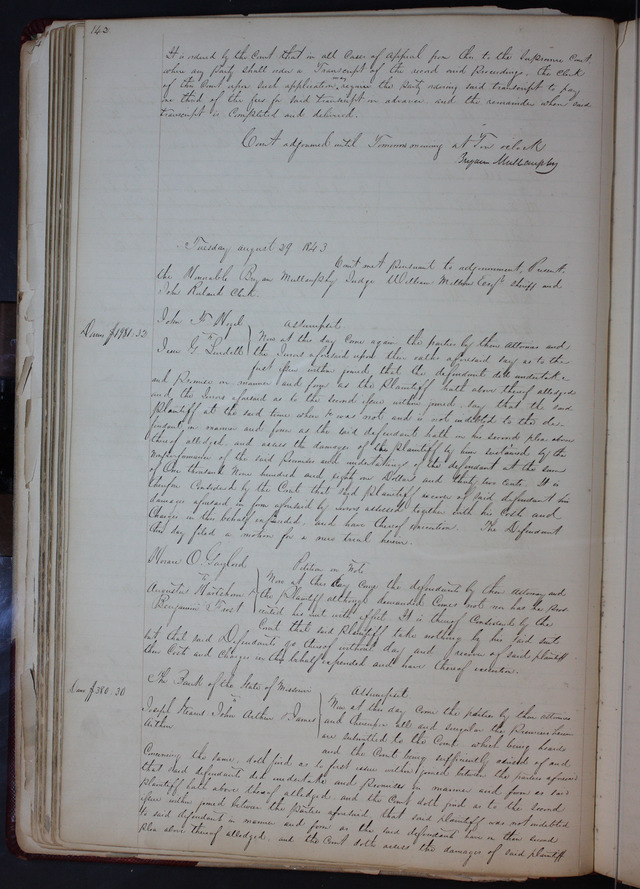 143
It is ordered by the Court that in all Cases of Appeal from this to the Supreme Court,
where any Party shall order a Transcript of the record and Proceedings, the Clerk
of the Court upon such application may require the party ordering said transcript to pay
one third of the fees for said transcript in advance and the remainder when said
transcript is Completed and delivered.
Court adjourned until Tomorrow morning at Ten oclock
Bryan Mullanphy
Tuesday august 29 1843
Court met Pursuant to adjournment, Present,
the Honorable Bryan Mullanphy Judge William Milburn Esqr Sheriff and
John Ruland Clerk.
John M
vs
Jesse G Lindell
Assumpsit.
Dams $1981.32
Now at this day Come again the parties by their Attornies and
the Jurors aforesaid upon their oaths aforesaid say as to the
first issue within joined, that the defendant did undertake
and Promise in manner and form as the Plaintiff hath above thereof alledged
and the Jurors aforesaid as to the second issue within joined, say that the said
Plaintiff at the said time when &c was not and is not indebted to the de-
fendant in manner and form as the said defendant hath in his second plea above
thereof alledged, and assess the damages of the Plaintiff by him sustained by the
nonperformance of the said Promises and undertakings of the defendant at the sum
of One thousand Nine hundred and eighty one Dollars and thirty two Cents. It is
therefore Considered by the Court that said Plaintiff recover of said defendant his
damages aforesaid in form aforesaid by Jurors assessed together with his Costs and
Charges in this behalf expended, and have thereof execution. The Defendant
this day filed a motion for a new trial herein.
Horace O. Gaylord
vs
Augustus Hartshorn
Benjamin Frost
Petition on Note
Now at this day Come the defendants by their Attorney and
the Plaintiff although demanded Comes not nor has he Pros-
ecuted his suit with effect. It is therefore Considered by the
Court that said Plaintiff take nothing by his said suit
but that said Defendants go thereof without day and recover of said plaintiff
their Costs and Charges in this behalf expended and have thereof execution.
The Bank of the State of Missouri
vs
Joseph Stearns John Arthur & James
Arthur
Assumpsit
Dams $380.30
Now at this day Come the parties by their attornies
and thereupon all and singular the Premises herein
are submitted to the Court which being heard
and the Court being sufficiently advised of and
Concerning the same, doth find as to first issue within joined between the parties aforesaid
that said defendants did undertake and Promise in manner and form as said
plaintiff hath above thereof alledged and the Court doth find as to the second
issue within joined between the parties aforesaid that said plaintiff was not indebted
to said defendant in manner and form as the said defendant have in their second
plea above thereof alledged, and the Court doth assess the damages of said plaintiff